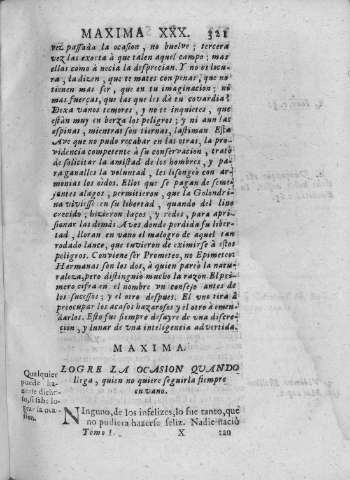 MAXIMA XXX. 321
vez passada la ocasion, no buelve; tercera
vez las exorta à que talen aquel campo; mas
ellas como à necia la desprecian. Y no es locu-
ra, la dizen, que te mates con penar, que no
tienen mas ser, que en tu imaginacion; ni
mas fuerças, que las que les dà tu covardia?
Dexa vanos temores, y no te inquietes, que
estàn muy en berza los peligros; y ni aun las
espinas, mientras son tiernas, lastiman. Esta
Ave que no pudo recabar en las otras, la pro-
videncia competente à su conservacion, tratò
de solicitar la amistad de los hombres, y pa-
ra ganalles la voluntad, les lisongeò con ar-
monias los oidos. Ellos que se pagan de seme-
jantes alagos, permitieron, que la Golondri-
na viviesse en su libertad, quando del lino
crecido, hizieron laços, y redes, para apri-
sionar las demàs Aves donde perdida su liber-
tad, lloran en vano el malogro de aquel tan
rodado lance, que tuvieron de eximirse à estos
peligros. Conviene ser Prometeo, no Epimeteo:
Hermanas son los dos, à quien pariò la natu-
raleza, pero distinguiò mucho la razon. El pri-
mero cifra en el nombre un consejo antes de
los sucessos; y el otro despues. El uno tira à
preocupar los acasos hazarosos y el otro à emen-
darlos. Esto fue siempre desayre de una discre-
cion, y lunar de una inteligencia advertida.
MAXIMA.
LOGRE LA OCASION QUANDO
llega, quien no quiere seguirla siempre
en vano.
Qualquier
puede ha-
zerse dicho-
so, si sabe lo-
grar la oca-
sion.
NInguno, de los infelizes, lo fue tanto, que
no pudiera hazerse feliz. Nadie naciò
Tomo I. X tan